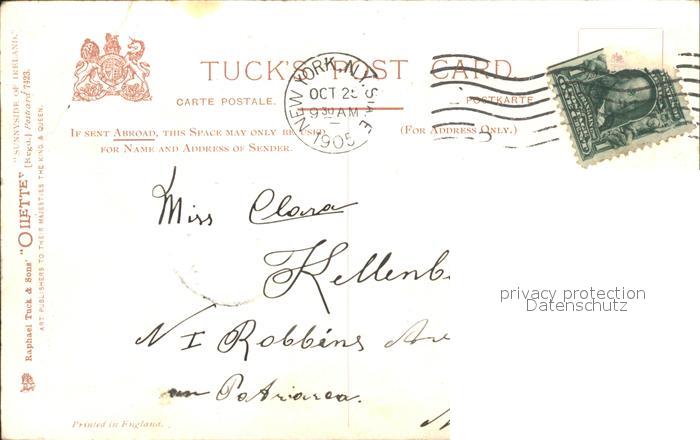 TUCK'S POST CARD.
CARTE POSTALE.
POSTKARTE
IF SENT ABROAD, THIS SPACE MAY ONLY BE USED
FOR NAME AND ADDRESS OF SENDER.
(FOR ADDRESS ONLY.)
NEW YORK, N.Y.
OCT 2
9 30 AM
1905
Miss Clara
Kellenb
N I Robbins Ave
Printed in England.
"SUNNYSIDE OF IRELAND."
Raphael Tuck & Sons' "OILETTE" [Regd.] Postcard 7423.
ART PUBLISHERS TO THEIR MAJESTIES THE KING & QUEEN.
privacy protection
Datenschutz